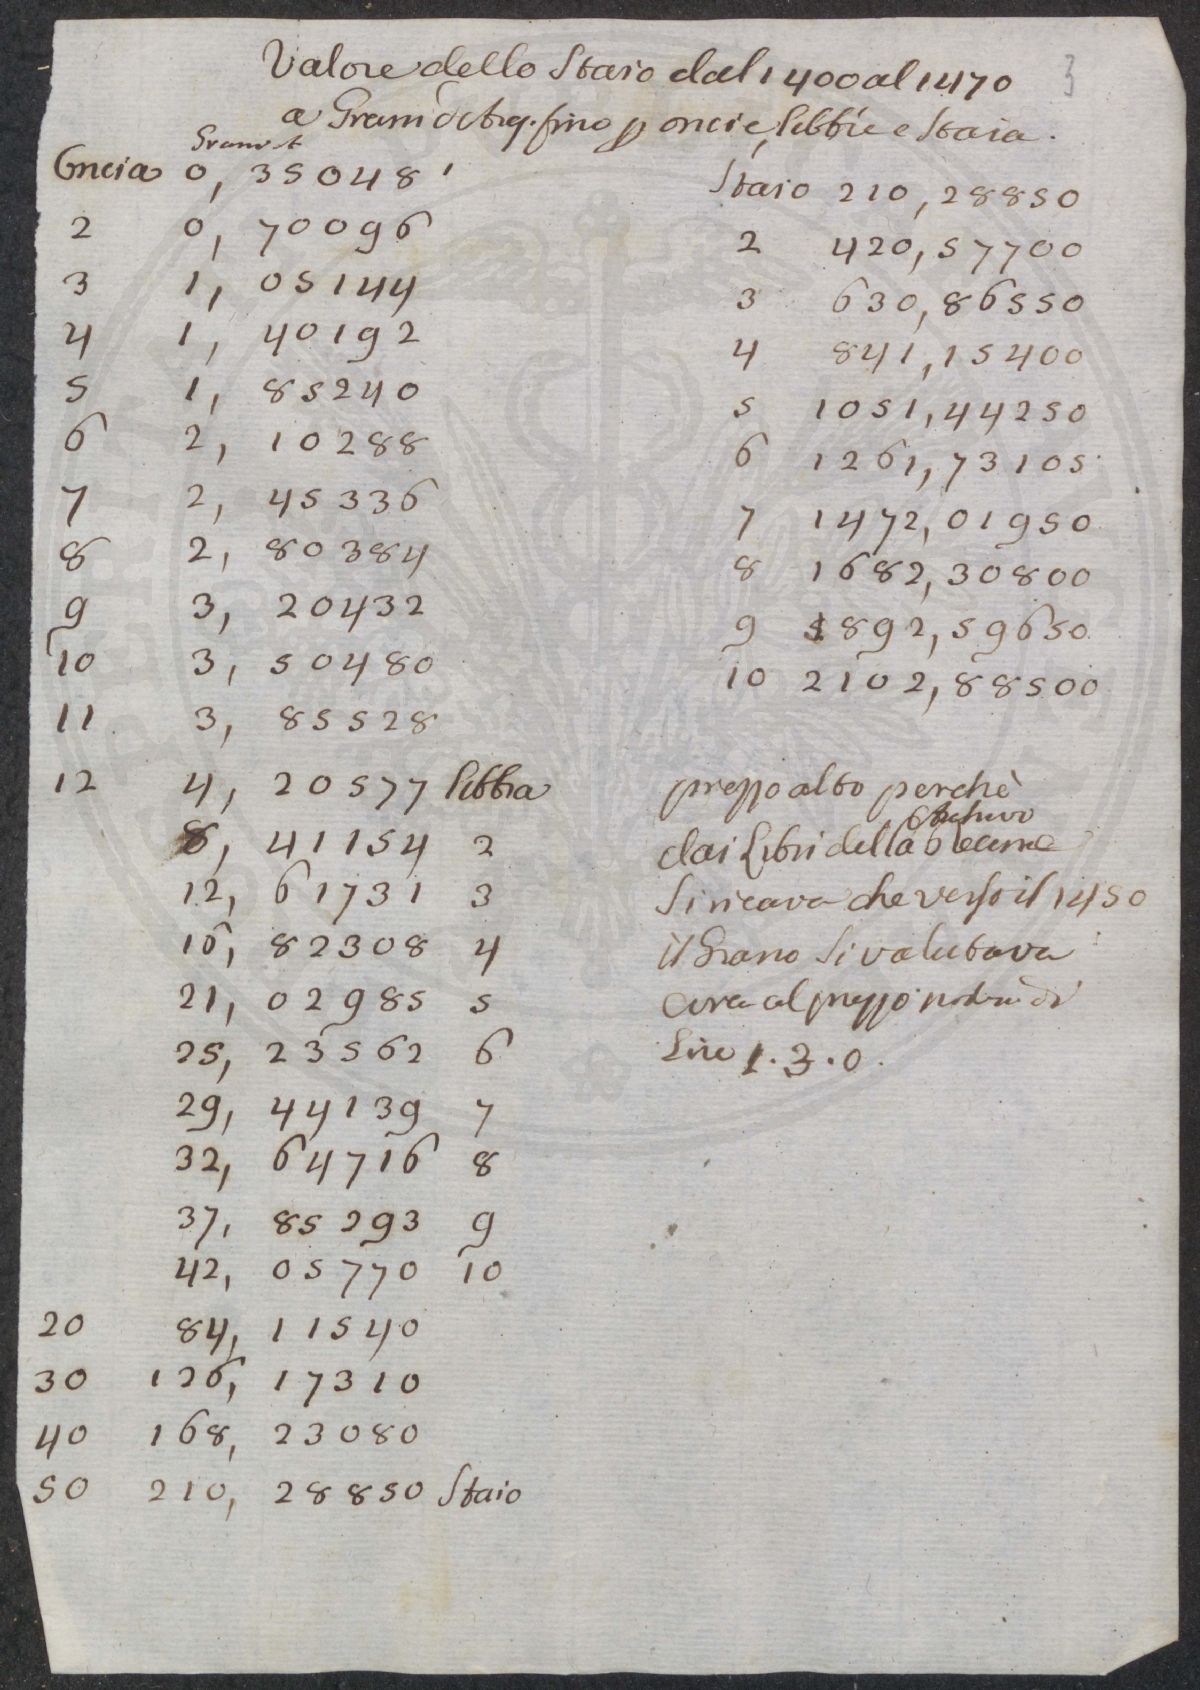 3
Valore dello Staio dal 1400 al 1470
a Grani d'Arg. fino p oncie, libbre e Staia.
Grani
Oncia 0, 35048
2 0, 70096
3 1, 05144
4 1, 40192
5 1, 85240
6 2, 10288
7 2, 45336
8 2, 80384
9 3, 20432
10 3, 50480
11 3, 85528
12 4, 20577 libbra
8, 41154 2
12, 61731 3
16, 82308 4
21, 02985 5
25, 23562 6
29, 44139 7
32, 64716 8
37, 85293 9
42, 05770 10
20 84, 11540
30 126, 17310
40 168, 23080
50 210, 28850 Staio
Staio 210, 28850
2 420, 57700
3 630, 86550
4 841, 15400
5 1051, 44250
6 1261, 73105
7 1472, 01950
8 1682, 30800
9 1892, 59650
10 2102, 88500
prezzo alto perchè
dai Libri della Decima
si ricava che verso il 1450
il Grano si valutava
circa al prezzo di
Lire 1.3.0.